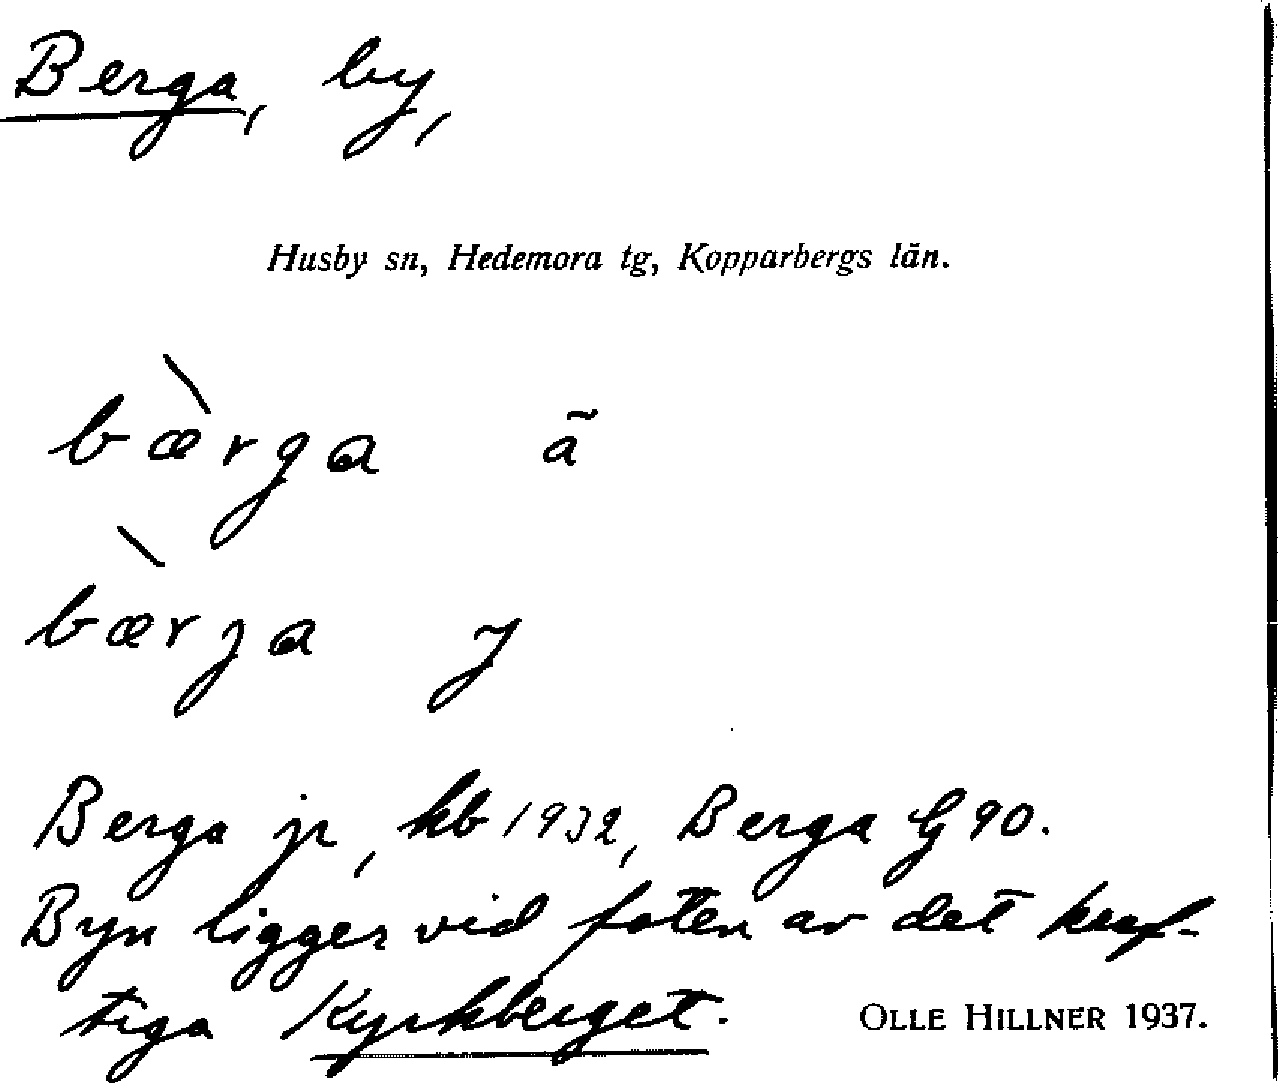 Berga, by,
Husby sn, Hedemora tg, Kopparbergs län.
bæ̀rga ã
bæ̀rja ỹ
Berga jr, kb 1932, Berga G 90.
Byn ligger vid foten av det kraf-
tiga Kyrkberget.
OLLE HILLNER 1937.